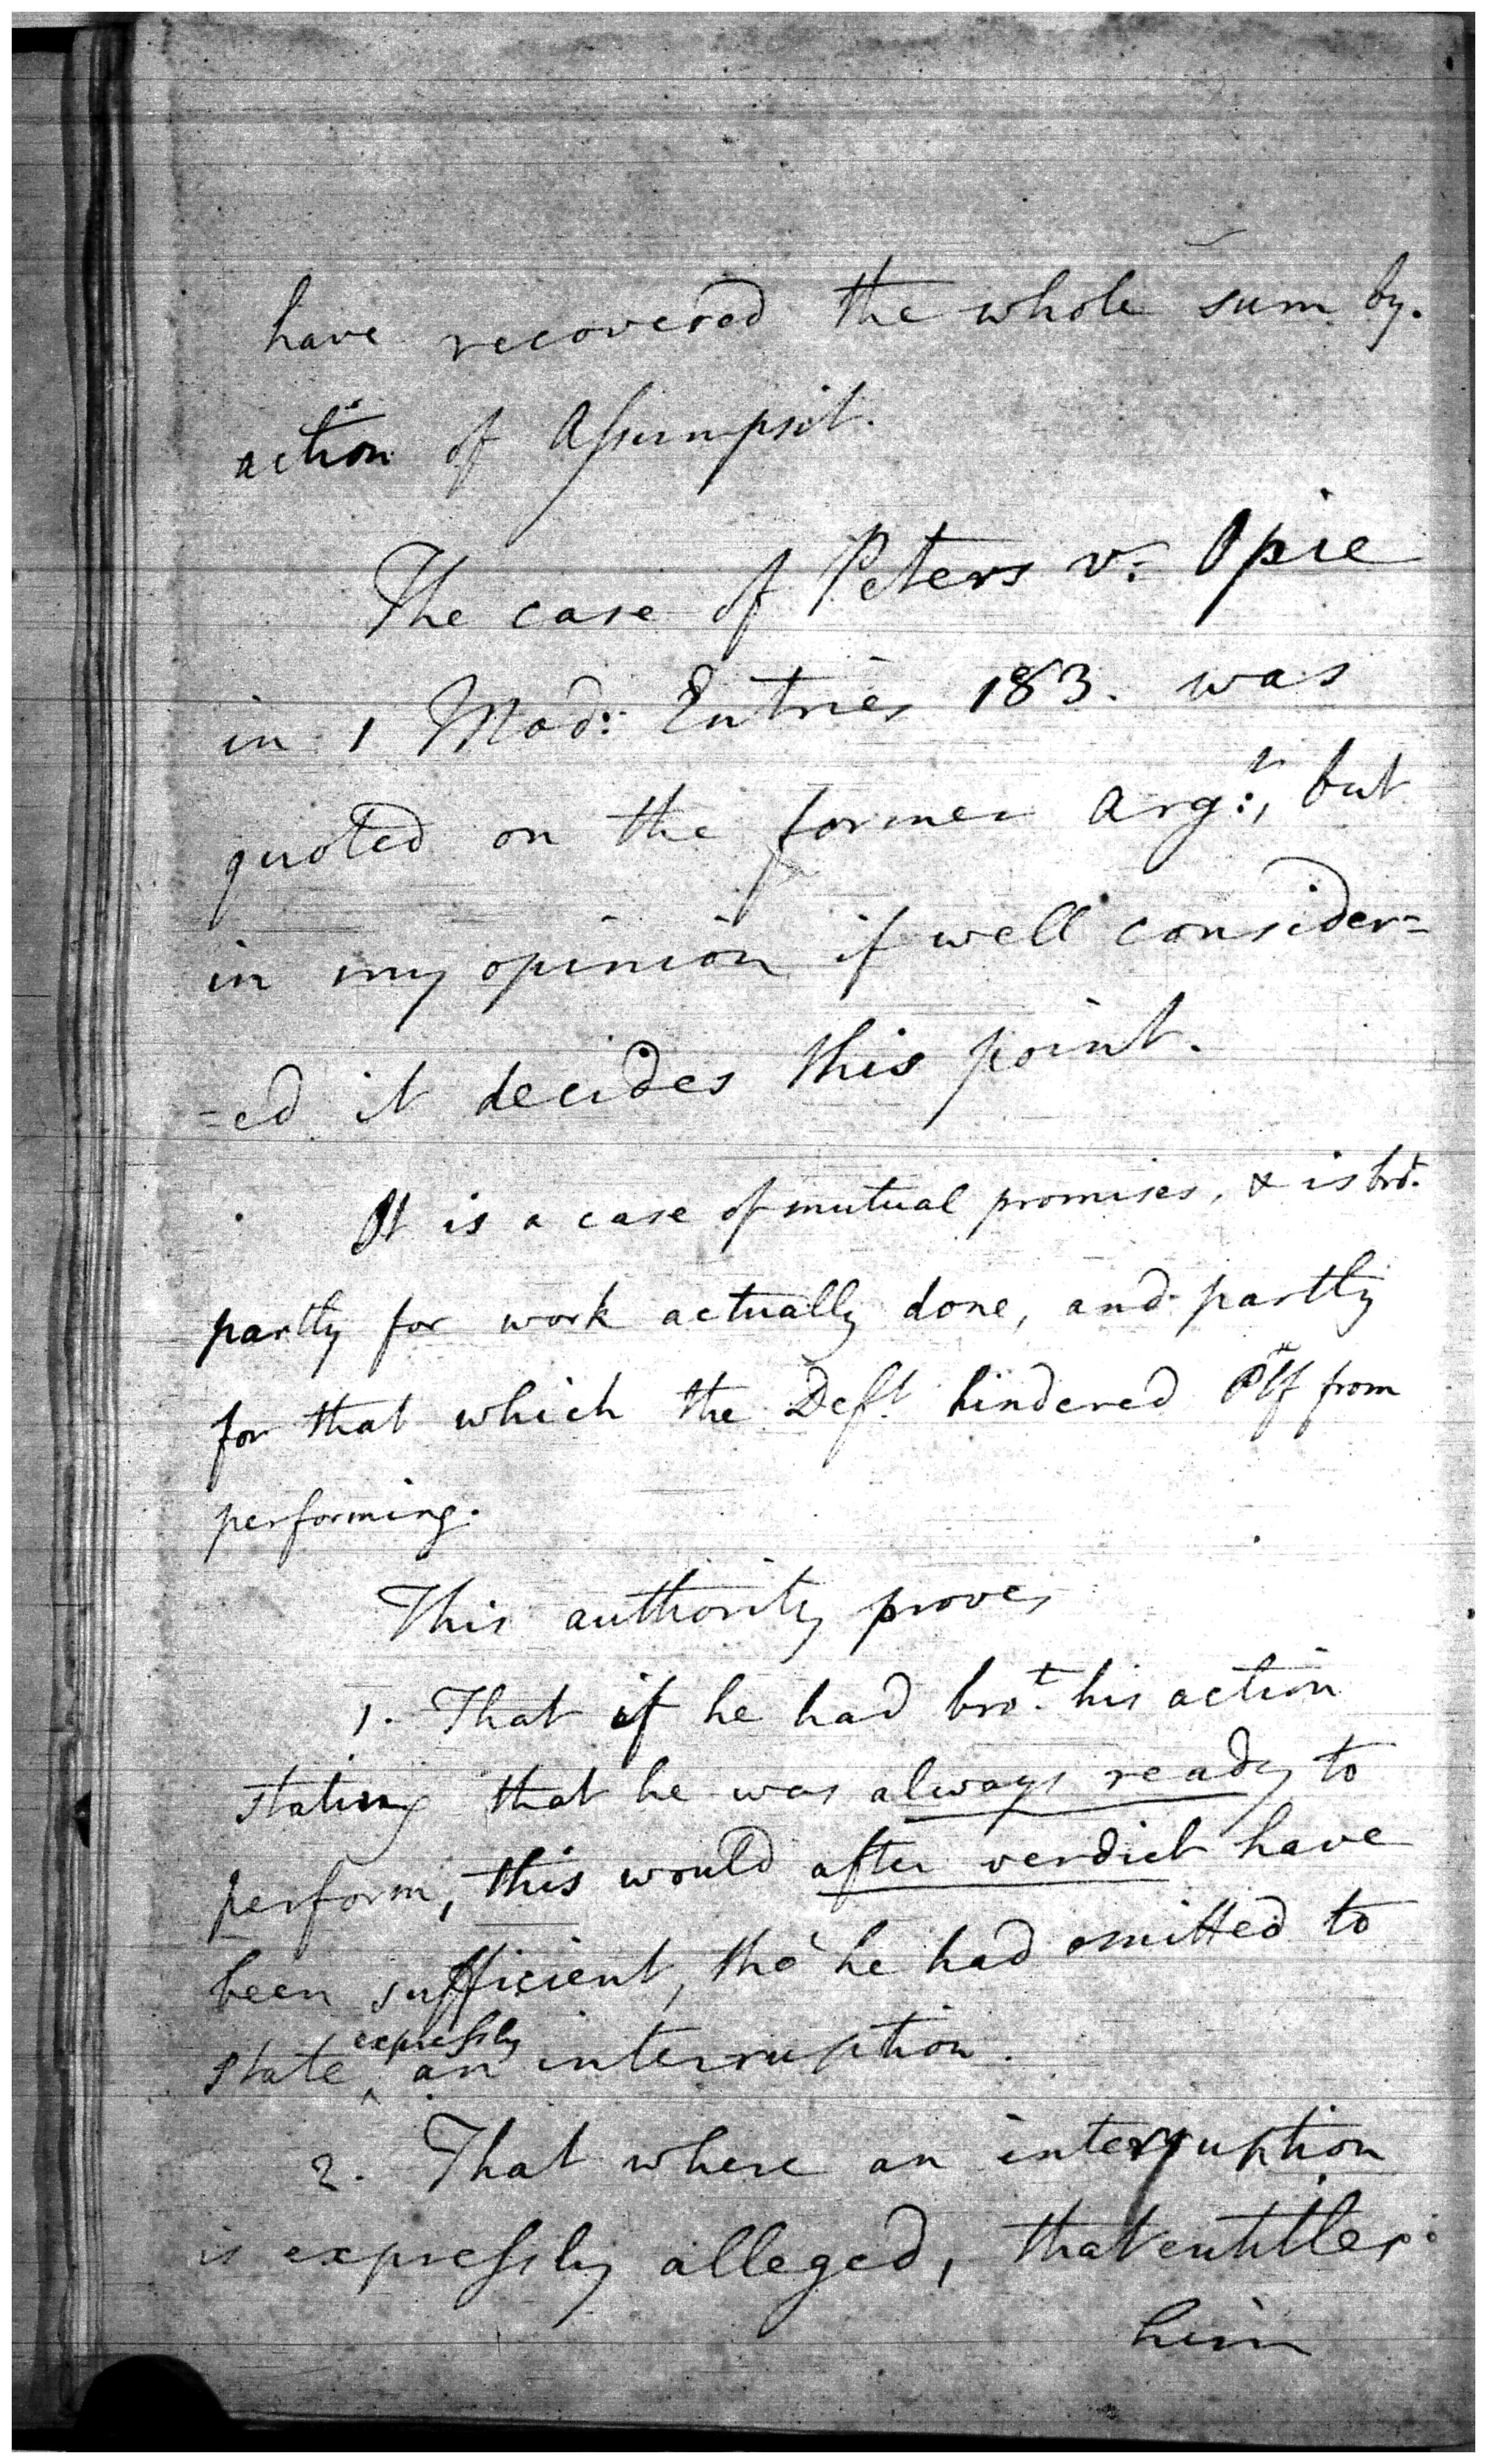 have recovered the whole sum by.
action of Assumpsit.
The case of Peters v: Opie
in 1 Mod: Entries 183. was
quoted on the former Arg:t, but
in my opinion if well consider=
=ed it decides this point.
It is a case of mutual promises, & is bro.t
partly for work actually done, and partly
for that which the Deft. hindered Pltf from
performing.
This authority proves
1. That if he had bro.t his action
stating that he was always ready to
perform, this would after verdict have
been sufficient, tho' he had omitted to
state ^expressly an interruption.
2. That where an interruption
is expressly alleged, that entitles
him